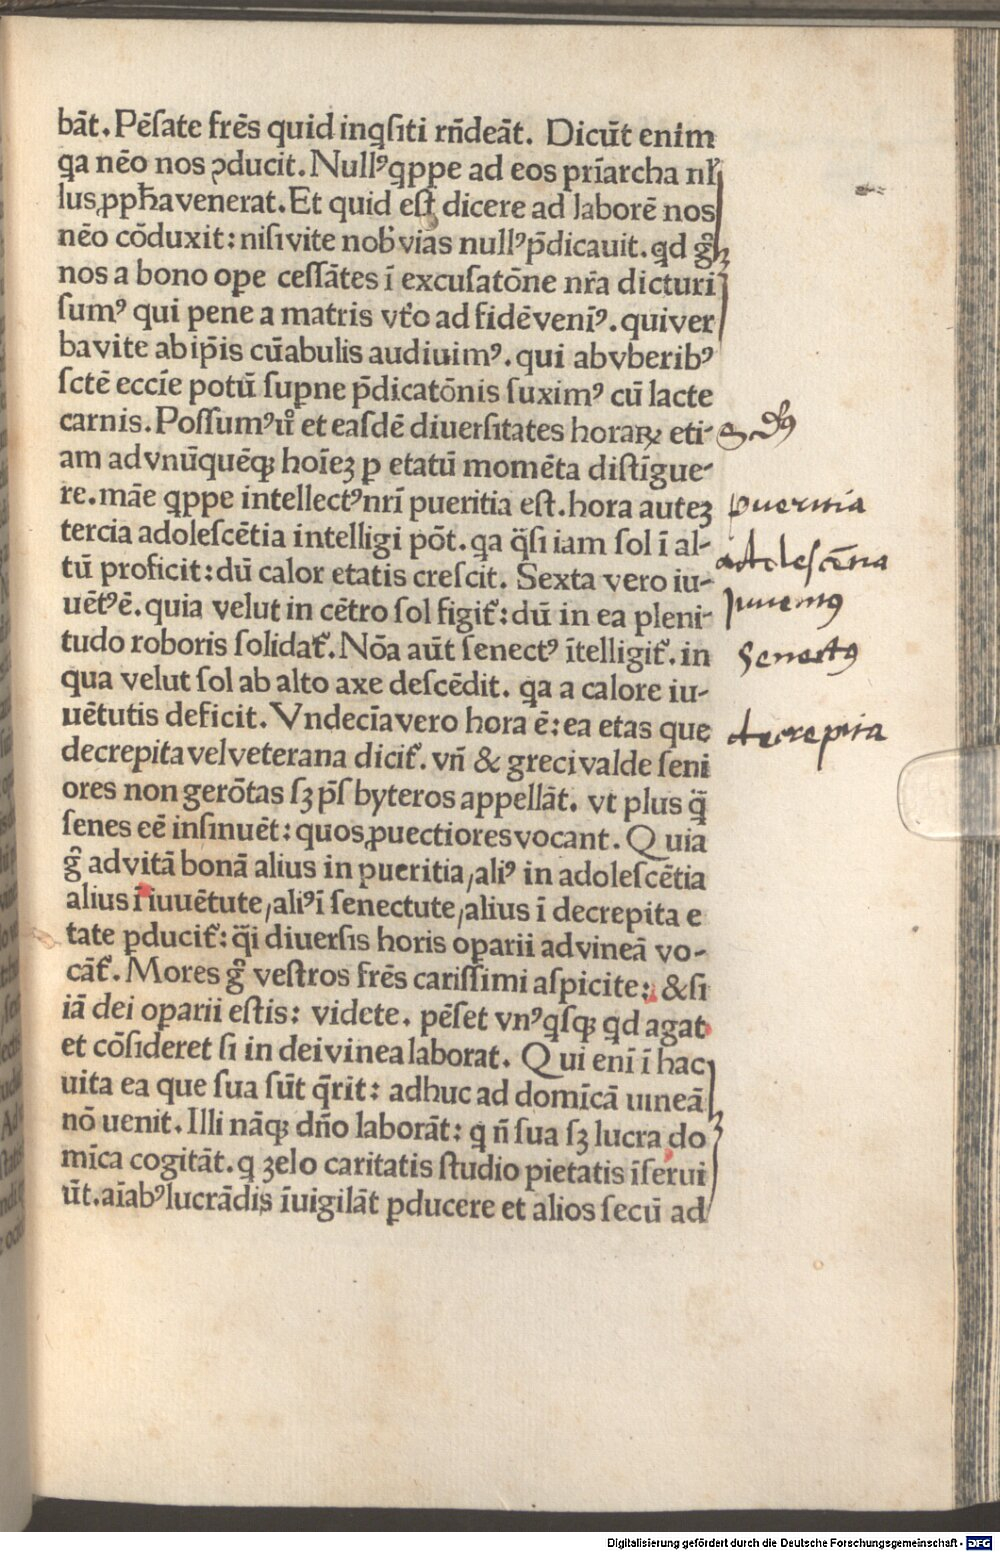 bāt. Pēſate frēs quid inqſiti rn̄deāt. Dicūt enim
qa nēo nos ꝯducit. Nullꝰ qppe ad eos pr̄iarcha nł
lus ꝓpħa venerat. Et quid eſt dicere ad laborē nos
nēo cōduxit: niſi vite nob̕ vias nullꝰ p̄dicauit. qd g̊
nos a bono ope ceſſātes ī excuſatōne nr̄a dicturi
ſumꝰ qui pene a matris vt̕o ad fidē veniꝰ. qui ver
ba vite ab ip̄is cūabulis audiuimꝰ. qui ab vberibꝰ
ſctē eccīe potū ſupne p̄dicatōnis ſuximꝰ cū lacte
carnis. Poſſumꝰ ů et eaſdē diuerſitates horaꝝ eti-
am ad vnūquēqꝫ hoīeꝫ ꝑ etatū momēta diſtīgue-
re. māe qppe intellectꝰ nrī pueritia eſt. hora auteꝫ
tercia adoleſcētia intelligi pōt. qa q̈ſi iam ſol ī al-
tū proficit: dū calor etatis creſcit. Sexta vero iu-
uētꝰ ē. quia velut in cētro ſol figit᷑: dū in ea pleni-
tudo roboris ſolidat᷑. Nōa aūt ſenectꝰ ītelligit᷑. in
qua velut ſol ab alto axe deſcēdit. qa a calore iu-
uētutis deficit. Vndecīa vero hora ē: ea etas que
decrepita vel veterana dicit᷑. vn̄ & greci valde ſeni
ores non gerōtas ſꝫ p̄ſbyteros appellāt. vt plus q̈̄
ſenes eē inſinuēt: quos ꝓuectiores vocant. Quia
g̊ ad vitā bonā alius in pueritia, aliꝰ in adoleſcētia
alius ī iuuētute, aliꝰ ī ſenectute, alius ī decrepita e
tate ꝑducit᷑: q̄i diuerſis horis oparii ad vineā vo-
cāt᷑. Mores g̊ veſtros frēs cariſſimi aſpicite: & ſi
iā dei oparii eſtis: videte. pēſet vnꝰqſqꝫ qd agat
et cōſideret ſi in dei vinea laborat. Qui enī ī hac
uita ea que ſua ſūt q̄rit: adhuc ad domīcā uineā
nō uenit. Illi nāqꝫ dn̄o laborāt: q n̄ ſua ſꝫ lucra do
mīca cogitāt. q ꝫelo caritatis ſtudio pietatis īſerui
ūt. aīabꝰ lucrādis īuigilāt ꝑducere et alios ſecū ad
pueritia
adoleſcētia
Juuentꝰ
Senectꝰ
decrepita
Digitalisierung gefördert durch die Deutsche Forschungsgemeinschaft - DFG